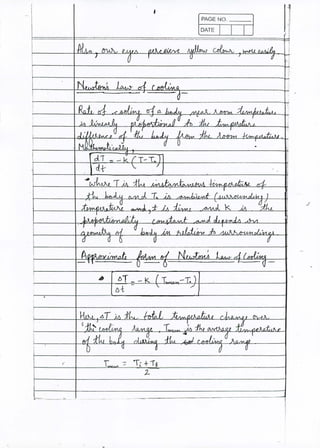 PAGE NO.
DATE
Also, our eyes perceive yellow colour, more easily
Newton's Law of Cooling
Rate of cooling of a body near room temperature
is linearly proportional to the temperature
difference of the body from the room temperature.
Mathematically,
dT/dt = -k (T - T₀)
where T is the instantaneous temperature of
the body and T₀ is ambient (surrounding)
temperature and, t is time and K is the
proportionality constant and depends on
geometry of body in relation to surroundings.
Approximate form of Newton's Law of Cooling
ΔT/Δt = -K (Tmean - T₀)
Here, ΔT is the total temperature change over
the cooling range, Tmean is the average temperature
of the body during the cooling range.
Tmean = Ti + Tf
2